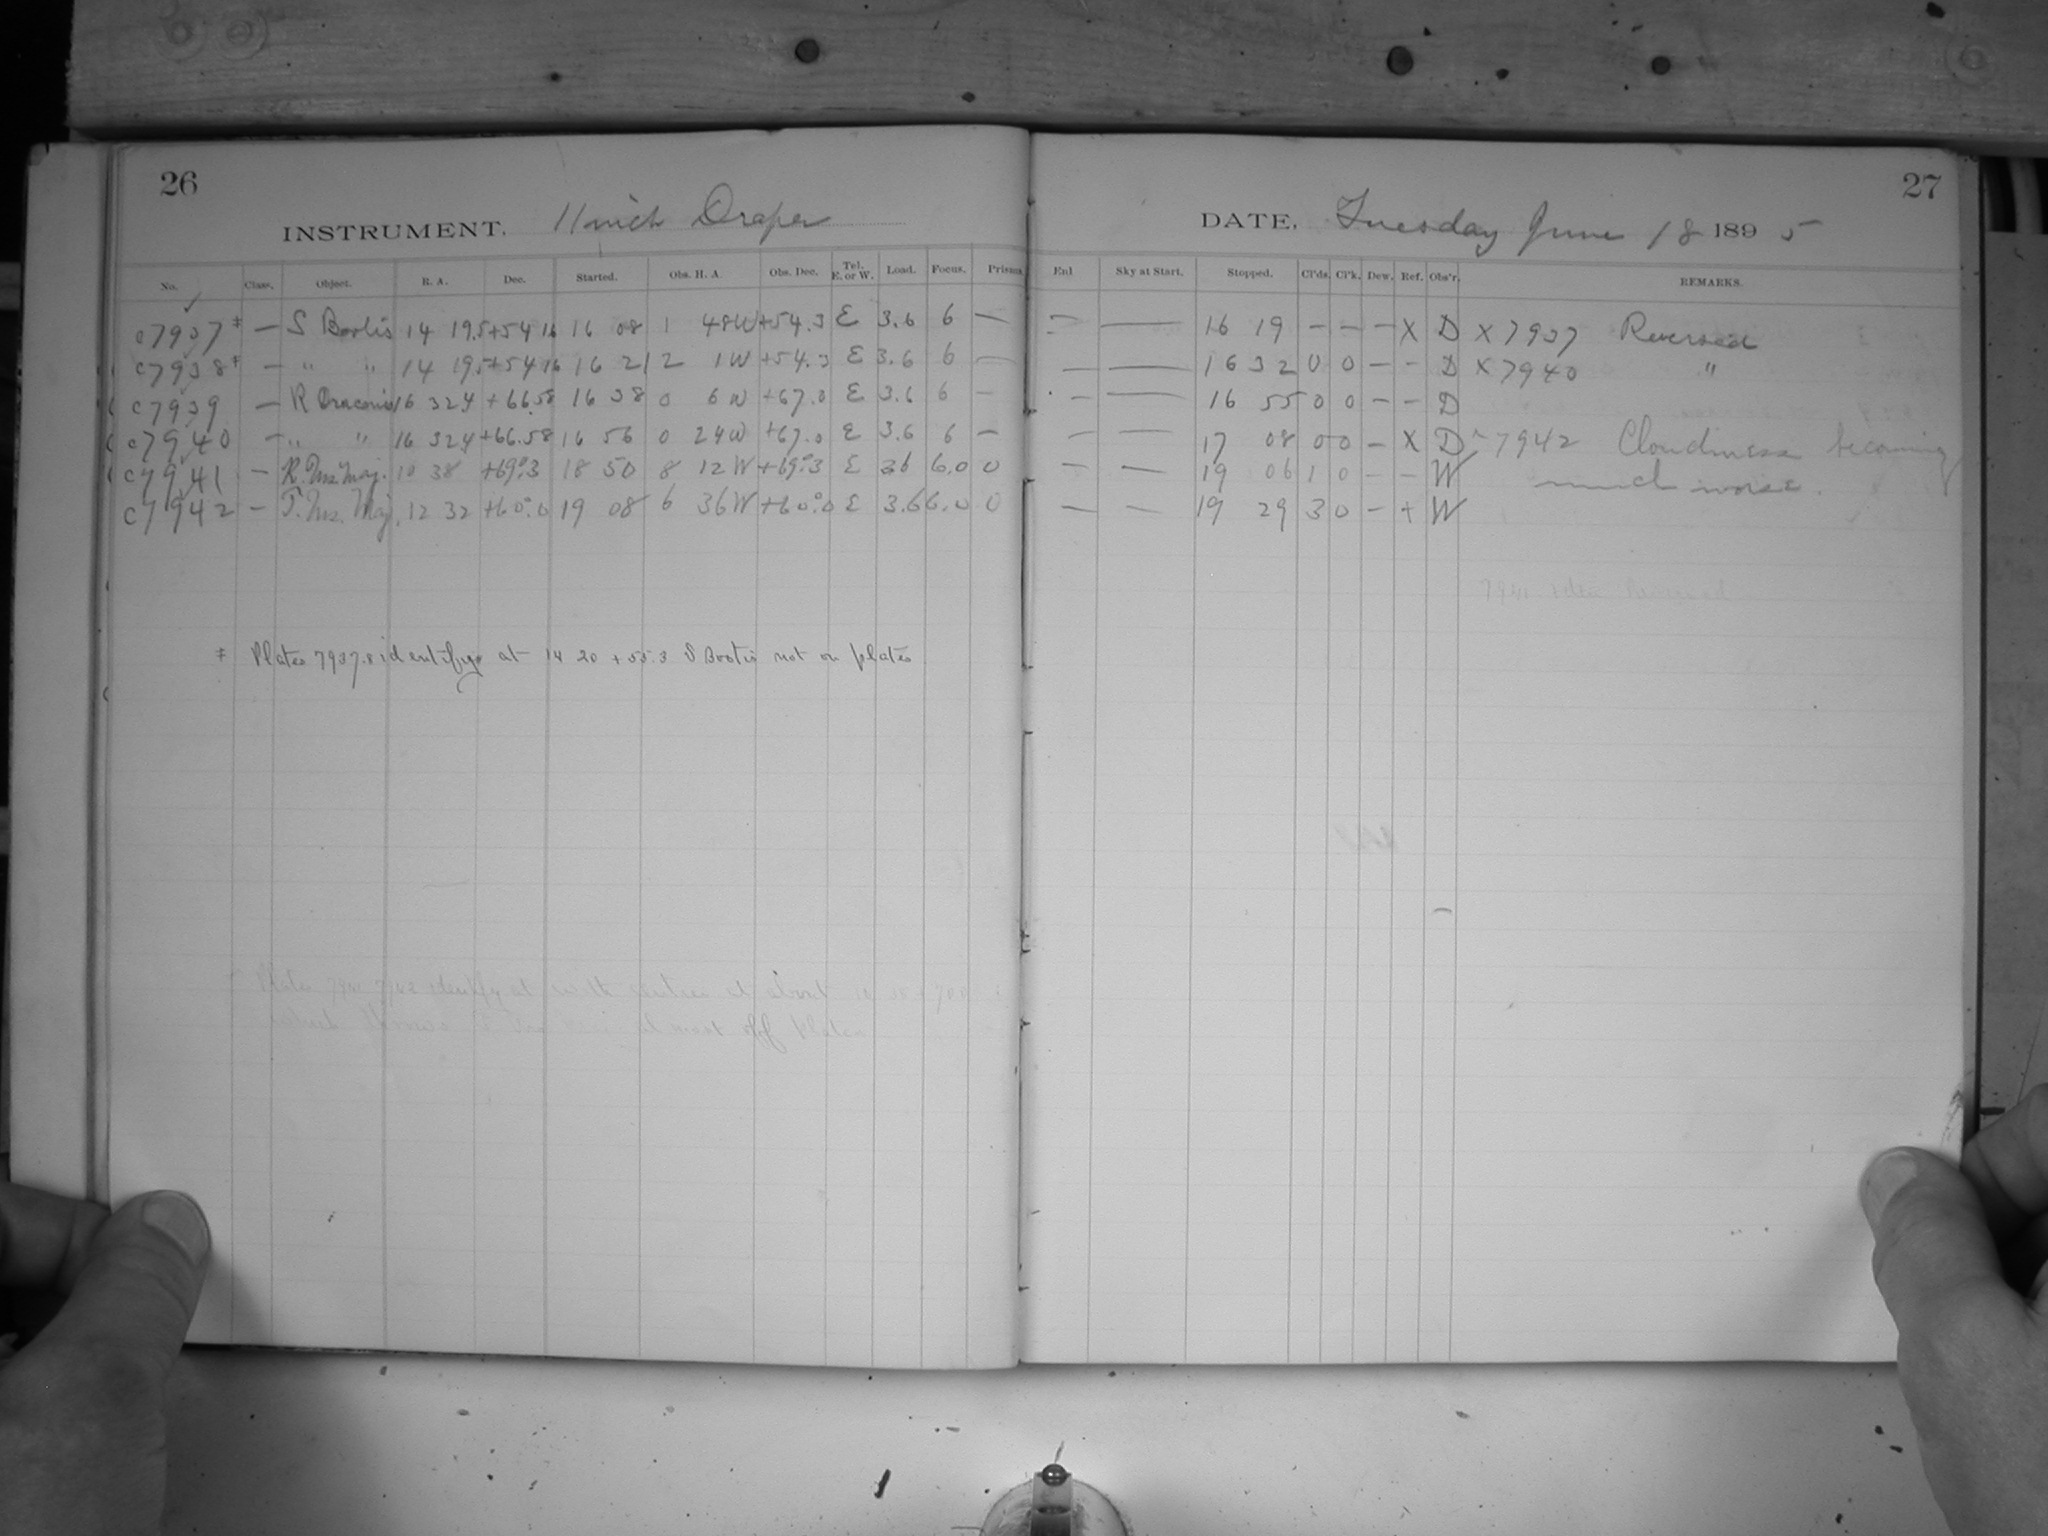 26
27
INSTRUMENT. 11 inch Draper
DATE. Tuesday June 18 1895
No. Class. Object. R. A. Dec. Started. Obs. H. A. Obs. Dec. Tel. E. or W. Load. Focus. Prisms. Enl Sky at Start. Stopped. Cl'ds. Cl'k. Dew. Ref. Obs'r. REMARKS.
c7937 ‡ — S Bootis 14 19.5 +54 16 16 08 1 48W +54.3 E 3.6 6 — — — 16 19 — — — X D X 7937 Reversed
c7938 ‡ — " " 14 19.5 +54 16 16 21 2 1W +54.3 E 3.6 6 — — — 16 32 0 0 — — D X 7940 "
c7939 — R Draconis 16 32.4 +66.58 16 38 0 6W +67.0 E 3.6 6 — — — 16 55 0 0 — — D
c7940 — " " 16 32.4 +66.58 16 56 0 24W +67.0 E 3.6 6 — — — 17 08 0 0 — X D 7942 Cloudiness becoming
c7941 — R. Urs. Maj. 10 38 +69°.3 18 50 8 12W +69°.3 E 3.6 6.0 0 — — 19 06 1 0 — — W much worse.
c7942 — T. Urs. Maj. 12 32 +60°.0 19 08 6 36W +60°.0 E 3.6 6.0 0 — — 19 29 3 0 — + W
‡ Plates 7937.8 identifys at 14 20 +55.3 S Bootis not on plates